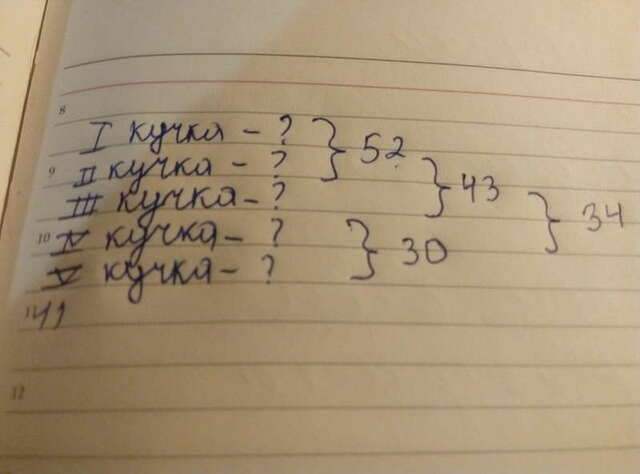 8
I кучка - ? } 52
9 II кучка - ? } 43
III кучка - ? } 34
10 IV кучка - ? } 30
V кучка - ?
11
12